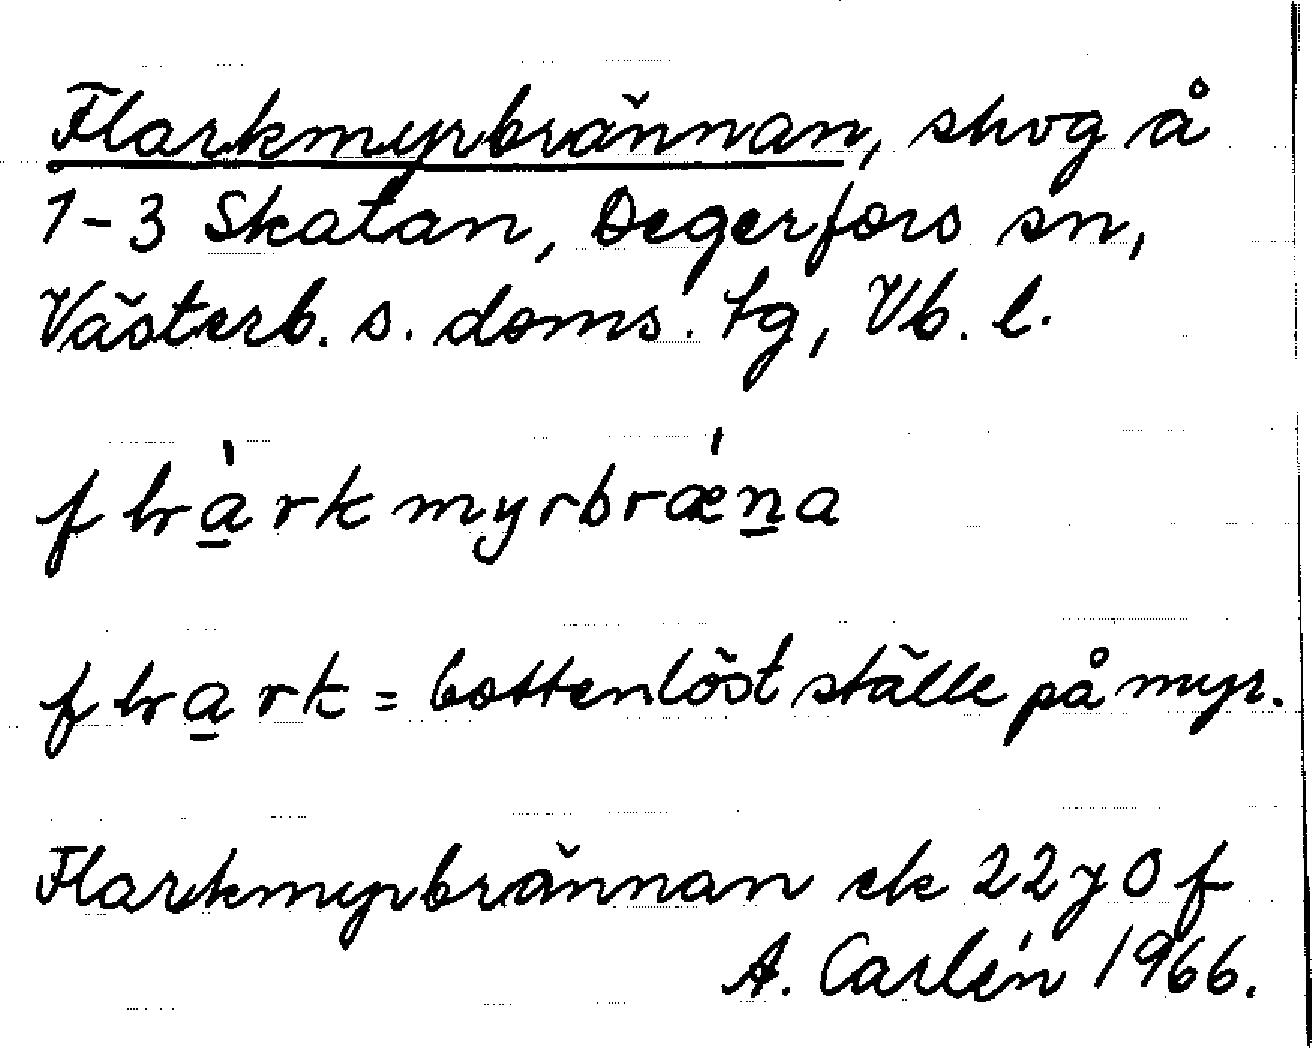 Flarkmyrbrännan, skog å
1-3 Skatan, Degerfors sn,
Västerb. s. doms. tg, Vb. l.
flrа̲̀rkmyrbrǽn̲a
flra̲rk = bottenlöst ställe på myr.
Flarkmyrbrännan ek 22y0f
A. Carlén 1966.